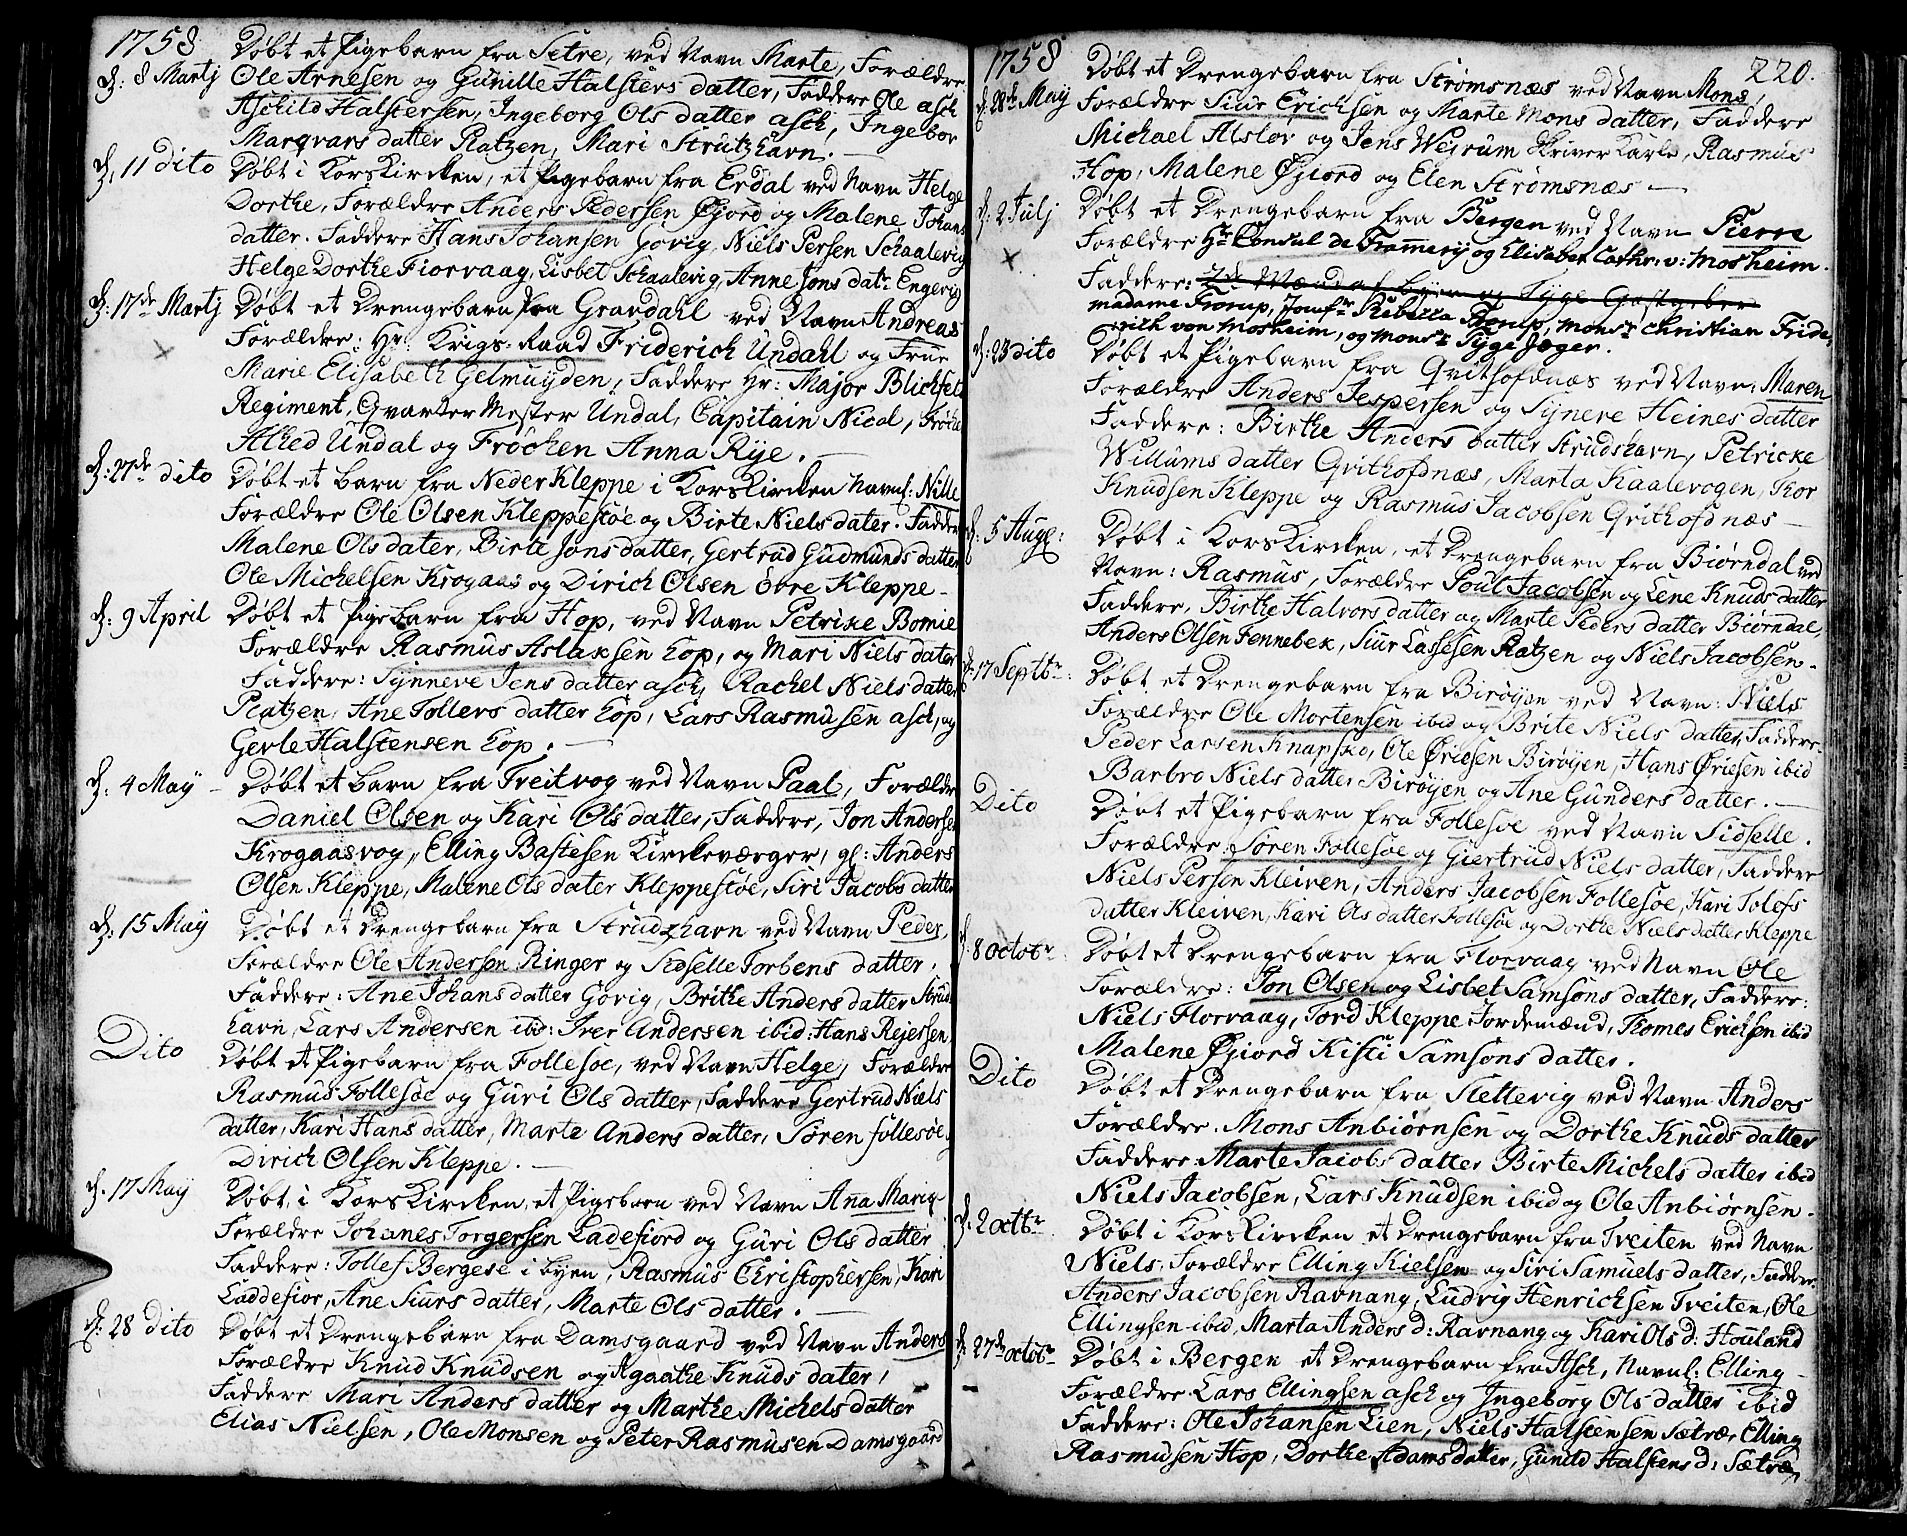 1758
Døbt et Pigebarn fra Setre, ved Navn Marte, Forældre
d: 8 Martj Ole Arnesen og Gunille Halsters datter, Faddere Ole asch
Aschild Halstersen, Ingeborg Ols datter asch, Ingebor
Marqvars datter Ratzen, Mari Strutzhavn. —
d, 11 dito Døbt i Korskircken, et Pigebarn fra Erdal ved Navn Helge
Dorthe, Forældre Anders Pedersen Øjord og Malene Johans
datter. Faddere Hans Johansen Govig, Niels Persen Schaalevig
Helge Dorthe Fiorvaag, Lisbet Schaalevig, Anne Jons dat: Engevig
d: 17de Martj Døbt et Drengebarn fra Gravdahl ved Navn Andreas
Forældre: Hr: Krigs: Raad Friderich Undahl og Frue
Marie Elisabeth Gelmuyden, Faddere Hr: Major Blichfelt
Regiment, Qvarter Mester Undal, Capitain Nicol,
Alhed Undal og Frøchen Anna Rye. —
d: 27de dito Døbt et barn fra Neder Kleppe i Korskircken Navnl: Nille
Forældre Ole Olsen Kleppestøe og Birte Niels dater. Fadder
Malene Ols dater, Birte Jons datter, Gertrud Gudmunds datter
Ole Michelsen Krogaas og Dirich Olsen Øvre Kleppe –
d: 9 April Døbt et Pigebarn fra Hop, ved Navn Petrike Bomie
Forældre Rasmus Aslaksen Hop, og Mari Niels dater
Faddere: Synneve Jens datter asch, Rachel Niels datter
Ratzen, Ane Tollers datter Hop, Lars Rasmusen asch, og
Gerle Halstensen Hop. —
d: 4 May – Døbt et barn fra Treitvog ved Navn Paal, Forældre
Daniel Olsen og Kari Ols datter, Faddere, Jon Andersen
Krogaasvog, Elling Bastesen Kirckeværger, gl: Anders
Olsen Kleppe, Malene Ols dater Kleppestøe, Siri Jacobs datter
d: 15 May Døbt et Drengebarn fra Strudzhavn ved Navn Peder,
Forældre Ole Andersen Ringer og Sidselle Torbens datter,
Faddere: Ane Johans datter Govig, Brithe Anders datter Strud
havn, Lars Andersen ibid: Iver Andersen ibid: Hans Rejersen
Dito Døbt et Pigebarn fra Follesøe, ved Navn Helge, Forældre
Rasmus Follesøe og Guri Ols datter, Faddere Gertrud Niels
datter, Kari Hans datter, Marte Anders datter, Søren follesøe,
Dirich Olsen Kleppe. —
d. 17 May Døbt, i Korskircken, et Pigebarn ved Navn Ana Maria
Forældre Johanes Torgersen Ladefiord og Guri Ols datter
Faddere: Tollef Bergese i byen, Rasmus Christophersen, Kari
Laddefior, Ane Siurs datter, Marte Ols datter. —
d: 28 dito Døbt et Drengebarn fra Damsgaard ved Navn Anders
Forældre Knud Knudsen og Agaathe Knuds dater,
Faddere Mari Anders datter og Marthe Michels datter
Elias Nielsen, Ole Monsen og Peter Rasmusen Damsgaard
1758 220.
Døbt et Drengebarn fra Strømsnæs ved Navn Mons,
d. 28de May Forældre Siur Erichsen og Marte Mons datter, Faddere
Michael Alsløv og Jens Wejrum Skriver Karle, Rasmus
Hop, Malene Øjiord og Elen Strømsnæs —
d: 2 Julj Døbt et Drengebarn fra Bergen ved Navn Pierre
Forældre Hr Consul de Framery og Elisabet Cathr: v: Mosheim.
Faddere: 2de Mænd af byen og Tyge Gastgeber
madame Frorup, Jomfr Rebecca Frorup, Monsr Christian Fride,
rich von Mosheim, og Monsr Tyge Jæger.
d: 23 dito Døbt et Pigebarn fra Qvithofdnæs ved Navn: Maren
Forældre Anders Jespersen og Synere Heines datter
Faddere: Birthe Anders datter Strudshavn, Petricke
Willums datter Qvithofdnæs, Marta Kaalevogen, Thor
Knudsen Kleppe og Rasmus Jacobsen Qvithofdnæs —
d: 5 Augl: Døbt i Korskircken, et Drengebarn fra Biørndal ved
Navn: Rasmus, Forældre Poul Jacobsen og Lene Knuds datter
Faddere, Birthe Halvors datter og Marte Peders datter Biørndal,
Anders Olsen Tennebek, Siur Lassesen Ratzen og Niels Jacobsen –
d: 17 Septbr: Døbt et Drengebarn fra Birøyen ved Navn: Niels
Forældre Ole Mortensen ibid og Brite Niels datter, Faddere
Peder Larsen Knapsko, Ole Øriesen Birøyen, Hans Øriesen ibid
Barbro Niels datter Birøyen og Ane Gunders datter. —
Dito Døbt et Pigebarn fra Follesøe ved Navn Sidselle.
Forældre Søren Follesøe og Giertrud Niels datter, Faddere
Niels Persen Kleiven, Anders Jacobsen Follesøe, Kari Tolefs
datter Kleiven, Kari Ols datter Follesøe og Dorthe Niels datter Kleppe
d. 8 Octobr Døbt et Drengebarn fra Florvaag ved Navn Ole
Forældre: Jon Olsen og Lisbet Samsons datter, Faddere:
Niels Florvaag, Tord Kleppe Jordemænd, Thomes Erichsen ibid
Malene Øjiord Kisti Samsons datter.
Dito Døbt et Drengebarn fra Slettevig ved Navn Anders
Forældre. Mons Anbiørnsen og Dorthe Knuds datter
Faddere Marte Jacobs datter Birte Michels datter ibid
Niels Jacobsen, Lars Knudsen ibid og Ole Anbiørnsen.
d: 2 octtr Døbt i Korskircken et Drengebarn fra Treiten ved Navn
Niels, Forældre Elling Kielsen og Siri Samuels datter, Fadder
Anders Jacobsen Ravnang, Ludvig Henrichsen Treiten, Ole
Ellingsen ibid, Marta Anders d: Ravnang og Kari Ols d: Houland
d: 27de octobr Døbt i Bergen et Drengebarn fra Asch, Navnl: Elling
Forældre Lars Ellingsen asch og Ingeborg Ols datter ibid
Faddere: Ole Johansen Lien, Niels Halstensen Sætræ, Elling
Rasmusen Hop, Dorthe Adams datter, Gunild Halstens d: Sætræ,